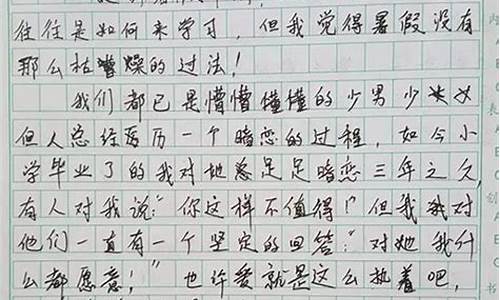 往往是如何来学习，但我觉得暑假没有
那么枯燥的过法！
我们都已是懵懵懂懂的少男少女
但人总经历一个暗恋的过程，如今小
学毕业了的我对她足足暗恋三年之久，
有人对我说："你这样不值得！"但我对
他们一直有一个坚定的回答："对她我什
么都愿意！"也许爱就是这么执着吧，